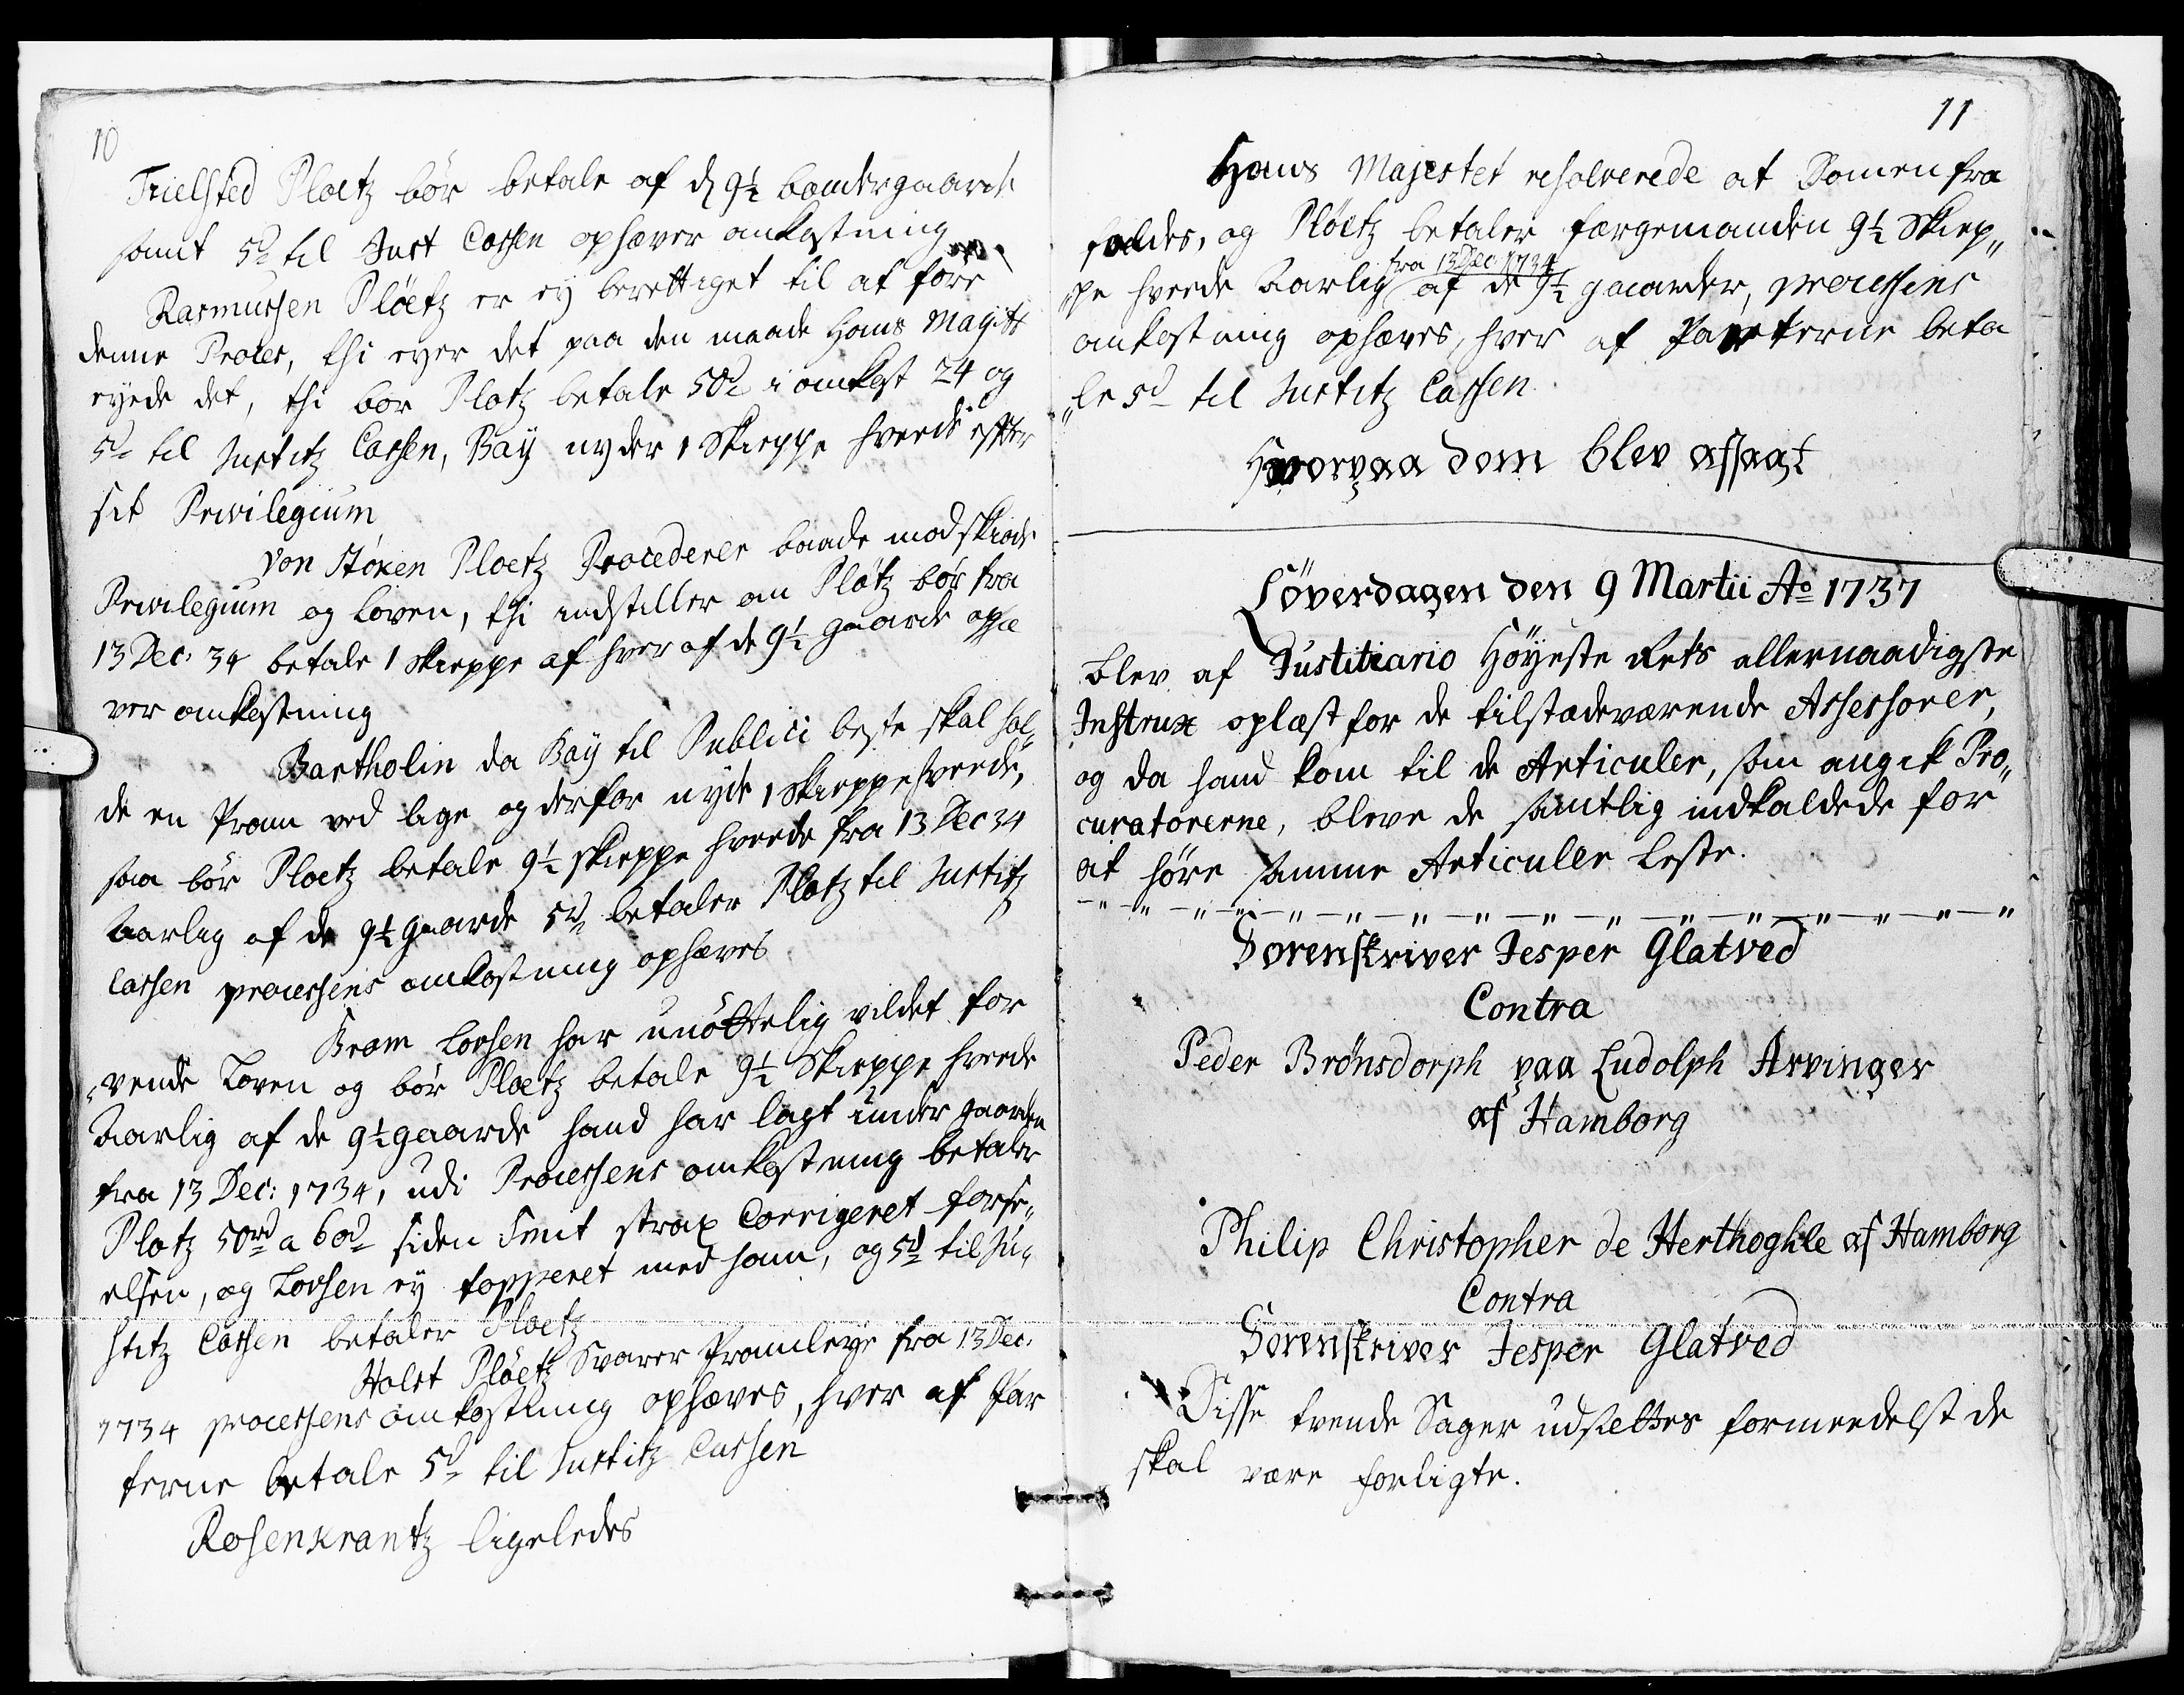 10
Trielsted Ploetz bør betale af d 9½ bøndergaarde
samt 5d til Just Cassen ophæver omkostning
Rasmussen Pløetz er ey berettiget til at føre
denne Proces, thi eyer det paa den maade Hans Magits
eyede det, thi bør Plotz betale 50d i omkost 24 og
5d til Justitz Cassen, Baÿ nyder 1 Skieppe hvede efter
sit Privilegium
Von Støken Ploetz Procederer baade mod skiøde
Privilegium og Loven, thi indstiller om Pløtz bør fra
13 Dec: 34 betale 1 skieppe af hver af de 9½ gaarde ophæ
ver omkostning
Bartholin da Baÿ til Publici beste skal hol„
de en Pram ved lige og derfor nyde 1 Skieppe hvede,
saa bør Ploetz betale 9½ skieppe hvede fra 13 Dec 34
aarlig af de 9½ gaarde 5d betaler Plotz til Justitz
Cassen processens omkostning ophæves
Bram Lovsen har unøttelig vildet for
„vende Loven og bør Ploetz betale 9½ Skieppe hvede
Aarlig af de 9½ gaarde hand har lagt under gaarden
fra 13 Dec: 1734, udi Processens omkostning betaler
Plotz 50rd a 60d siden Smit strax Corrigeret forse„
elsen, og Lovsen ey topperet med ham, og 5d til Ju„
stitz Cassen betaler Ploetz
Holst Pløetz Svarer Pramleye fra 13 Dec:
1734 processens omkostning ophæves, hver af Par
terne betale 5d til Justitz Cassen
Rosenkrantz ligeledes
11
Hans Majestet resolverede at Domen fra
faldes, og Pløetz betaler færgemanden 9½ Skiep„
fra 13 Dec: 1734
„pe hvede Aarlig af de 9½ gaarder, processens
omkostning ophæves, hver af Parterne beta
„le 5d til Justitz Cassen
Hvorpaa dom blev afsagt
Løverdagen den 9 Martii Ao 1737
blev af Justitiario Høyeste Rets allernaadigste
Instrux oplæst for de tilstædeværende Assessorer,
og da hand kom til de Articuler, som angik Pro„
curatorerne, bleve de samtlig indkaldede for
at høre samme Articuler leste.
Sorenskriver Jesper Glatved
Contra
Peder Brønsdorph paa Ludolph Arvinger
af Hamborg
Philip Christopher de Herthoghe af Hamborg
Contra
Sorenskriver Jesper Glatved
Disse tvende Sager udsættes formedelst de
skal være forligte.